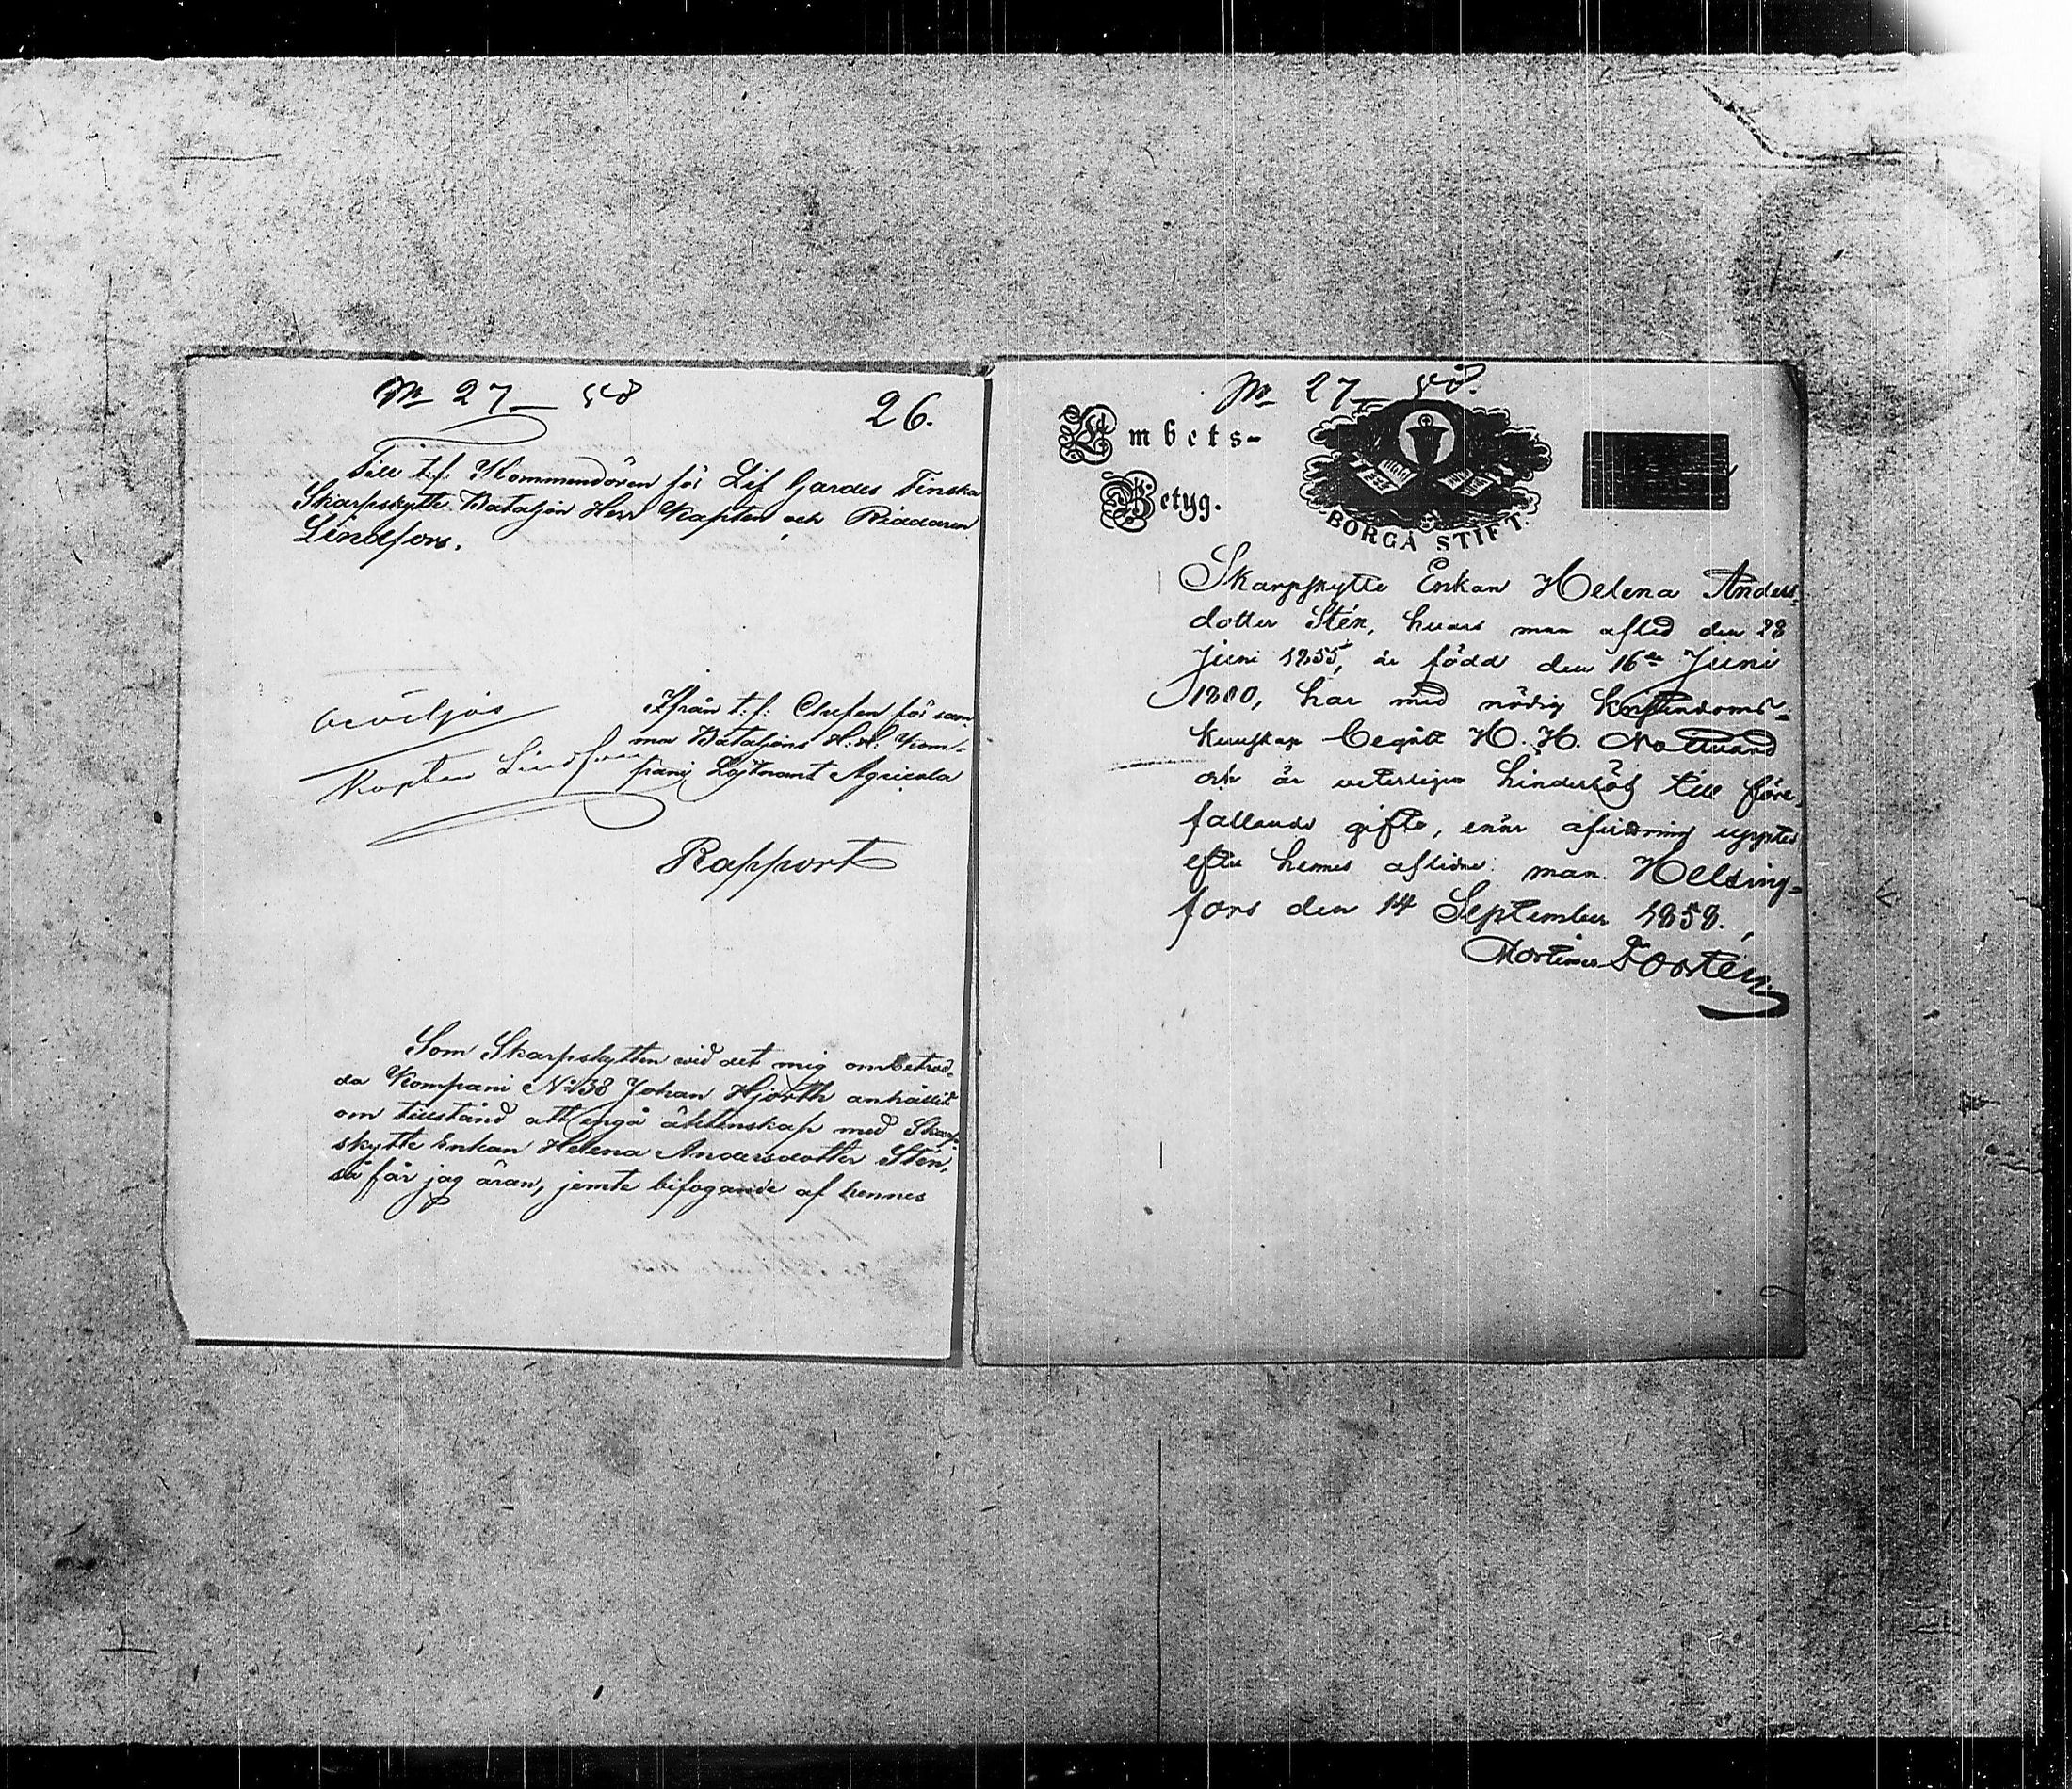 № 27 58
26.
Till t.f. Kommendören för Lif Gardes Finska
Skarpskytte Bataljon Herr Kapten och Riddaren
Lindfors.
beviljas
Kapten Lindfors
Ifrån t.f. Chefen för sam-
ma Bataljons H.H. Kom-
pani Löjtnant Agricola
Rapport
Som Skarpskytten vid det mig ombetrod-
da Kompani No 38 Johan Hjorth anhållit
om tillstånd att ingå äktenskap med Skarp-
skytte Enkan Helena Andersdotter Stén,
så får jag äran, jemte bifogande af hennes
№ 27 58.
Embets-
Betyg.
BORGÅ STIFT.
Skarpskytte Enkan Helena Anders-
dotter Stén, hvars man afled den 28
Juni 1855, är född den 16de Juni
1800, har med nödig Kristendoms-
kunskap begått H. H. Nattvard
och är veterligen hinderlös till före-
fallande gifte, enär afvittring uppter
efter hennes aflidne man. Helsing-
fors den 14 September 1858.